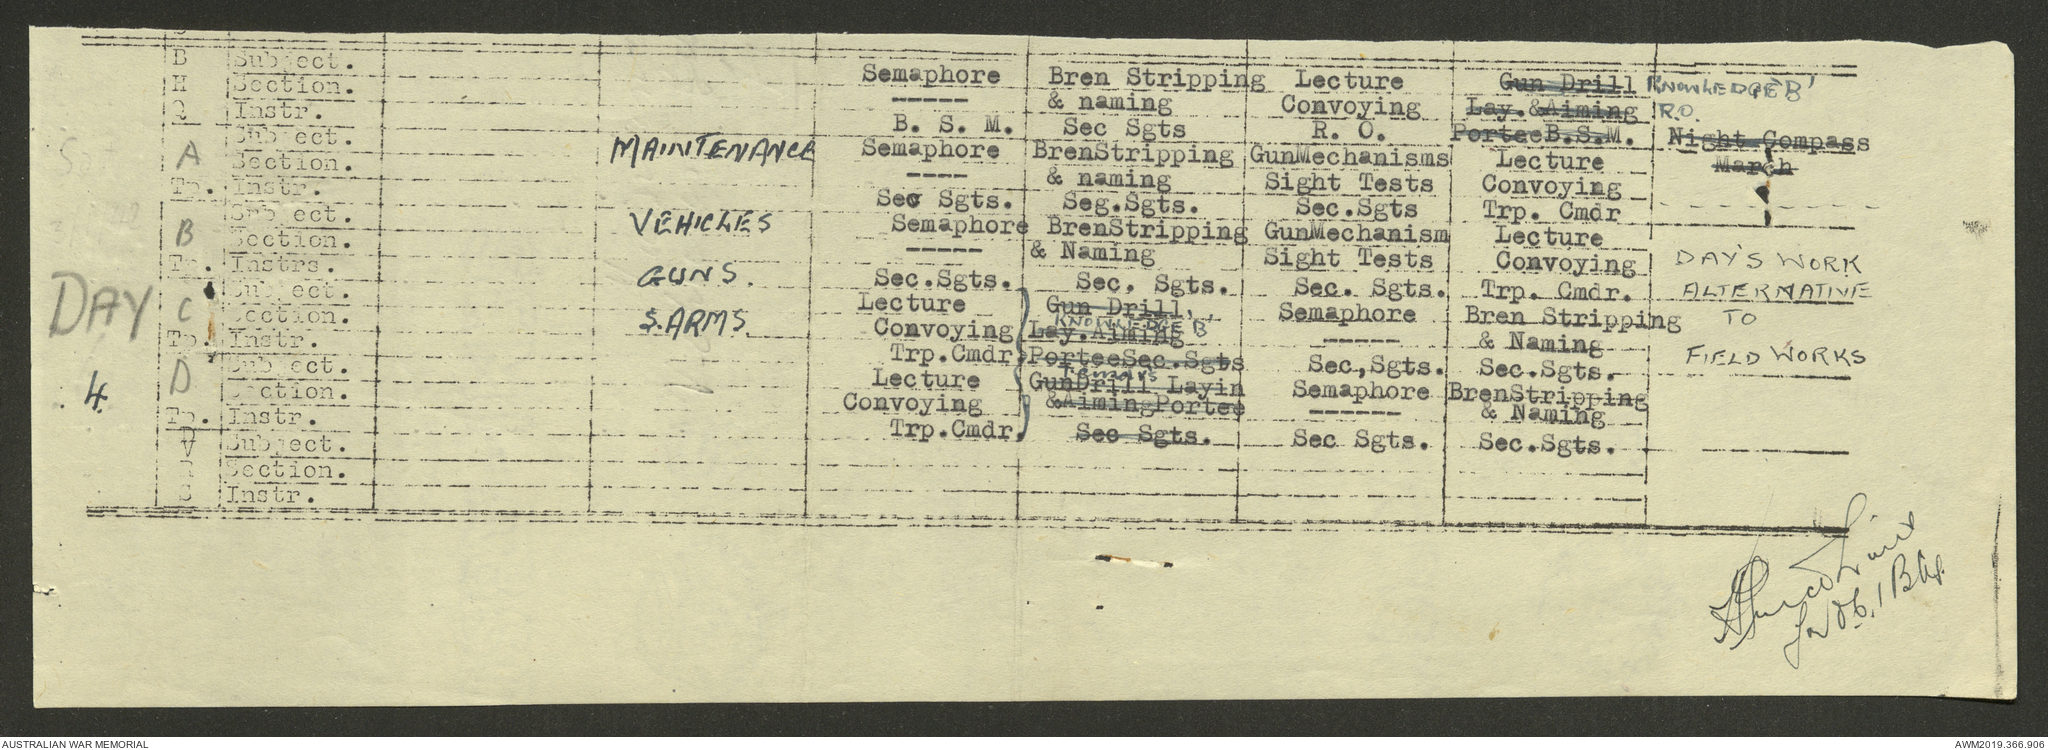 B Subject.
H Section.
Q Instr.
Semaphore
-----
B. S. M.
Bren Stripping
& naming
Sec Sgts
Lecture
Convoying
R. O.
Gun Drill
Lay. & Aiming
Portee B.S.M.
KNOWLEDGE 'B'
R.O.
Night Compass
March
DAY
4.
A Subject.
Section.
Tp. Instr.
MAINTENANCE
Semaphore
----
Sec Sgts.
BrenStripping
& naming
Seg.Sgts.
GunMechanisms
Sight Tests
Sec.Sgts
Lecture
Convoying
Trp. Cmdr
B Subject.
Section.
Tp. Instrs.
VEHICLES
GUNS.
Semaphore
-----
Sec.Sgts.
BrenStripping
& Naming
Sec. Sgts.
GunMechanism
Sight Tests
Sec. Sgts.
Lecture
Convoying
Trp. Cmdr.
DAY'S WORK
ALTERNATIVE
TO
FIELD WORKS
C Subject.
Section.
Tp. Instr.
S.ARMS.
Lecture
Convoying
Trp.Cmdr.
Gun Drill,
KNOWLEDGE B
Lay.Aiming
PorteeSec.Sgts
Semaphore
-----
Sec,Sgts.
Bren Stripping
& Naming
Sec.Sgts.
D Subject.
Section.
Tp. Instr.
Lecture
Convoying
Trp.Cmdr.
GunDrill Layin
&AimingPortee
Sec Sgts.
Semaphore
------
Sec Sgts.
BrenStripping
& Naming
Sec.Sgts.
V Subject.
R Section.
S Instr.
1 Bty.
AUSTRALIAN WAR MEMORIAL
AWM2019.366.906